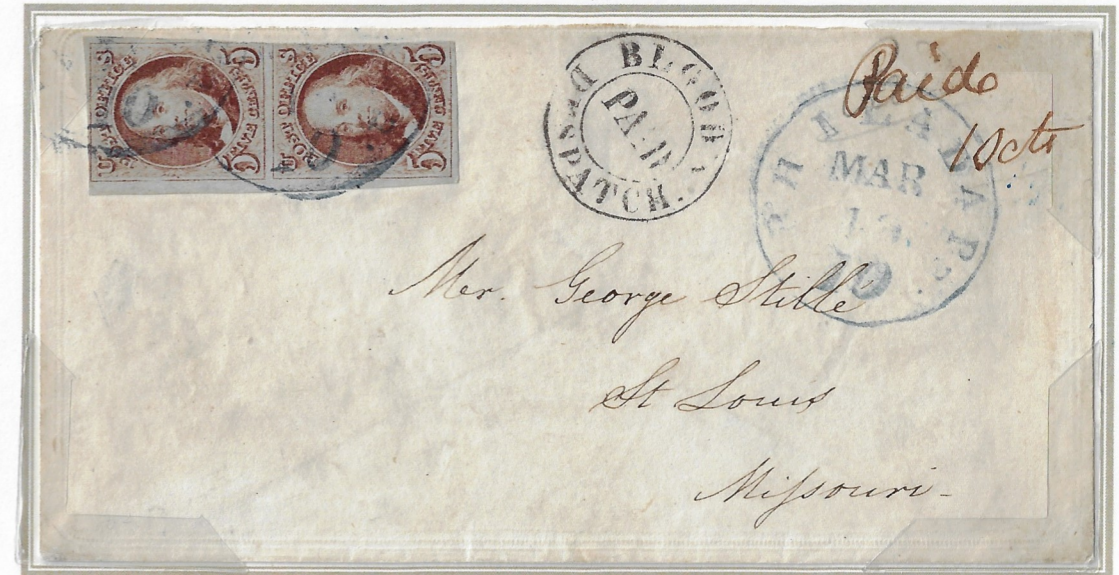 POST OFFICE
FIVE CENTS
5
5
POST OFFICE
FIVE CENTS
5
5
BLOOD'S DESPATCH.
PAID
PHILADA Pa.
MAR
10
Paid
10cts
Mr. George Stille
St Louis
Missouri-